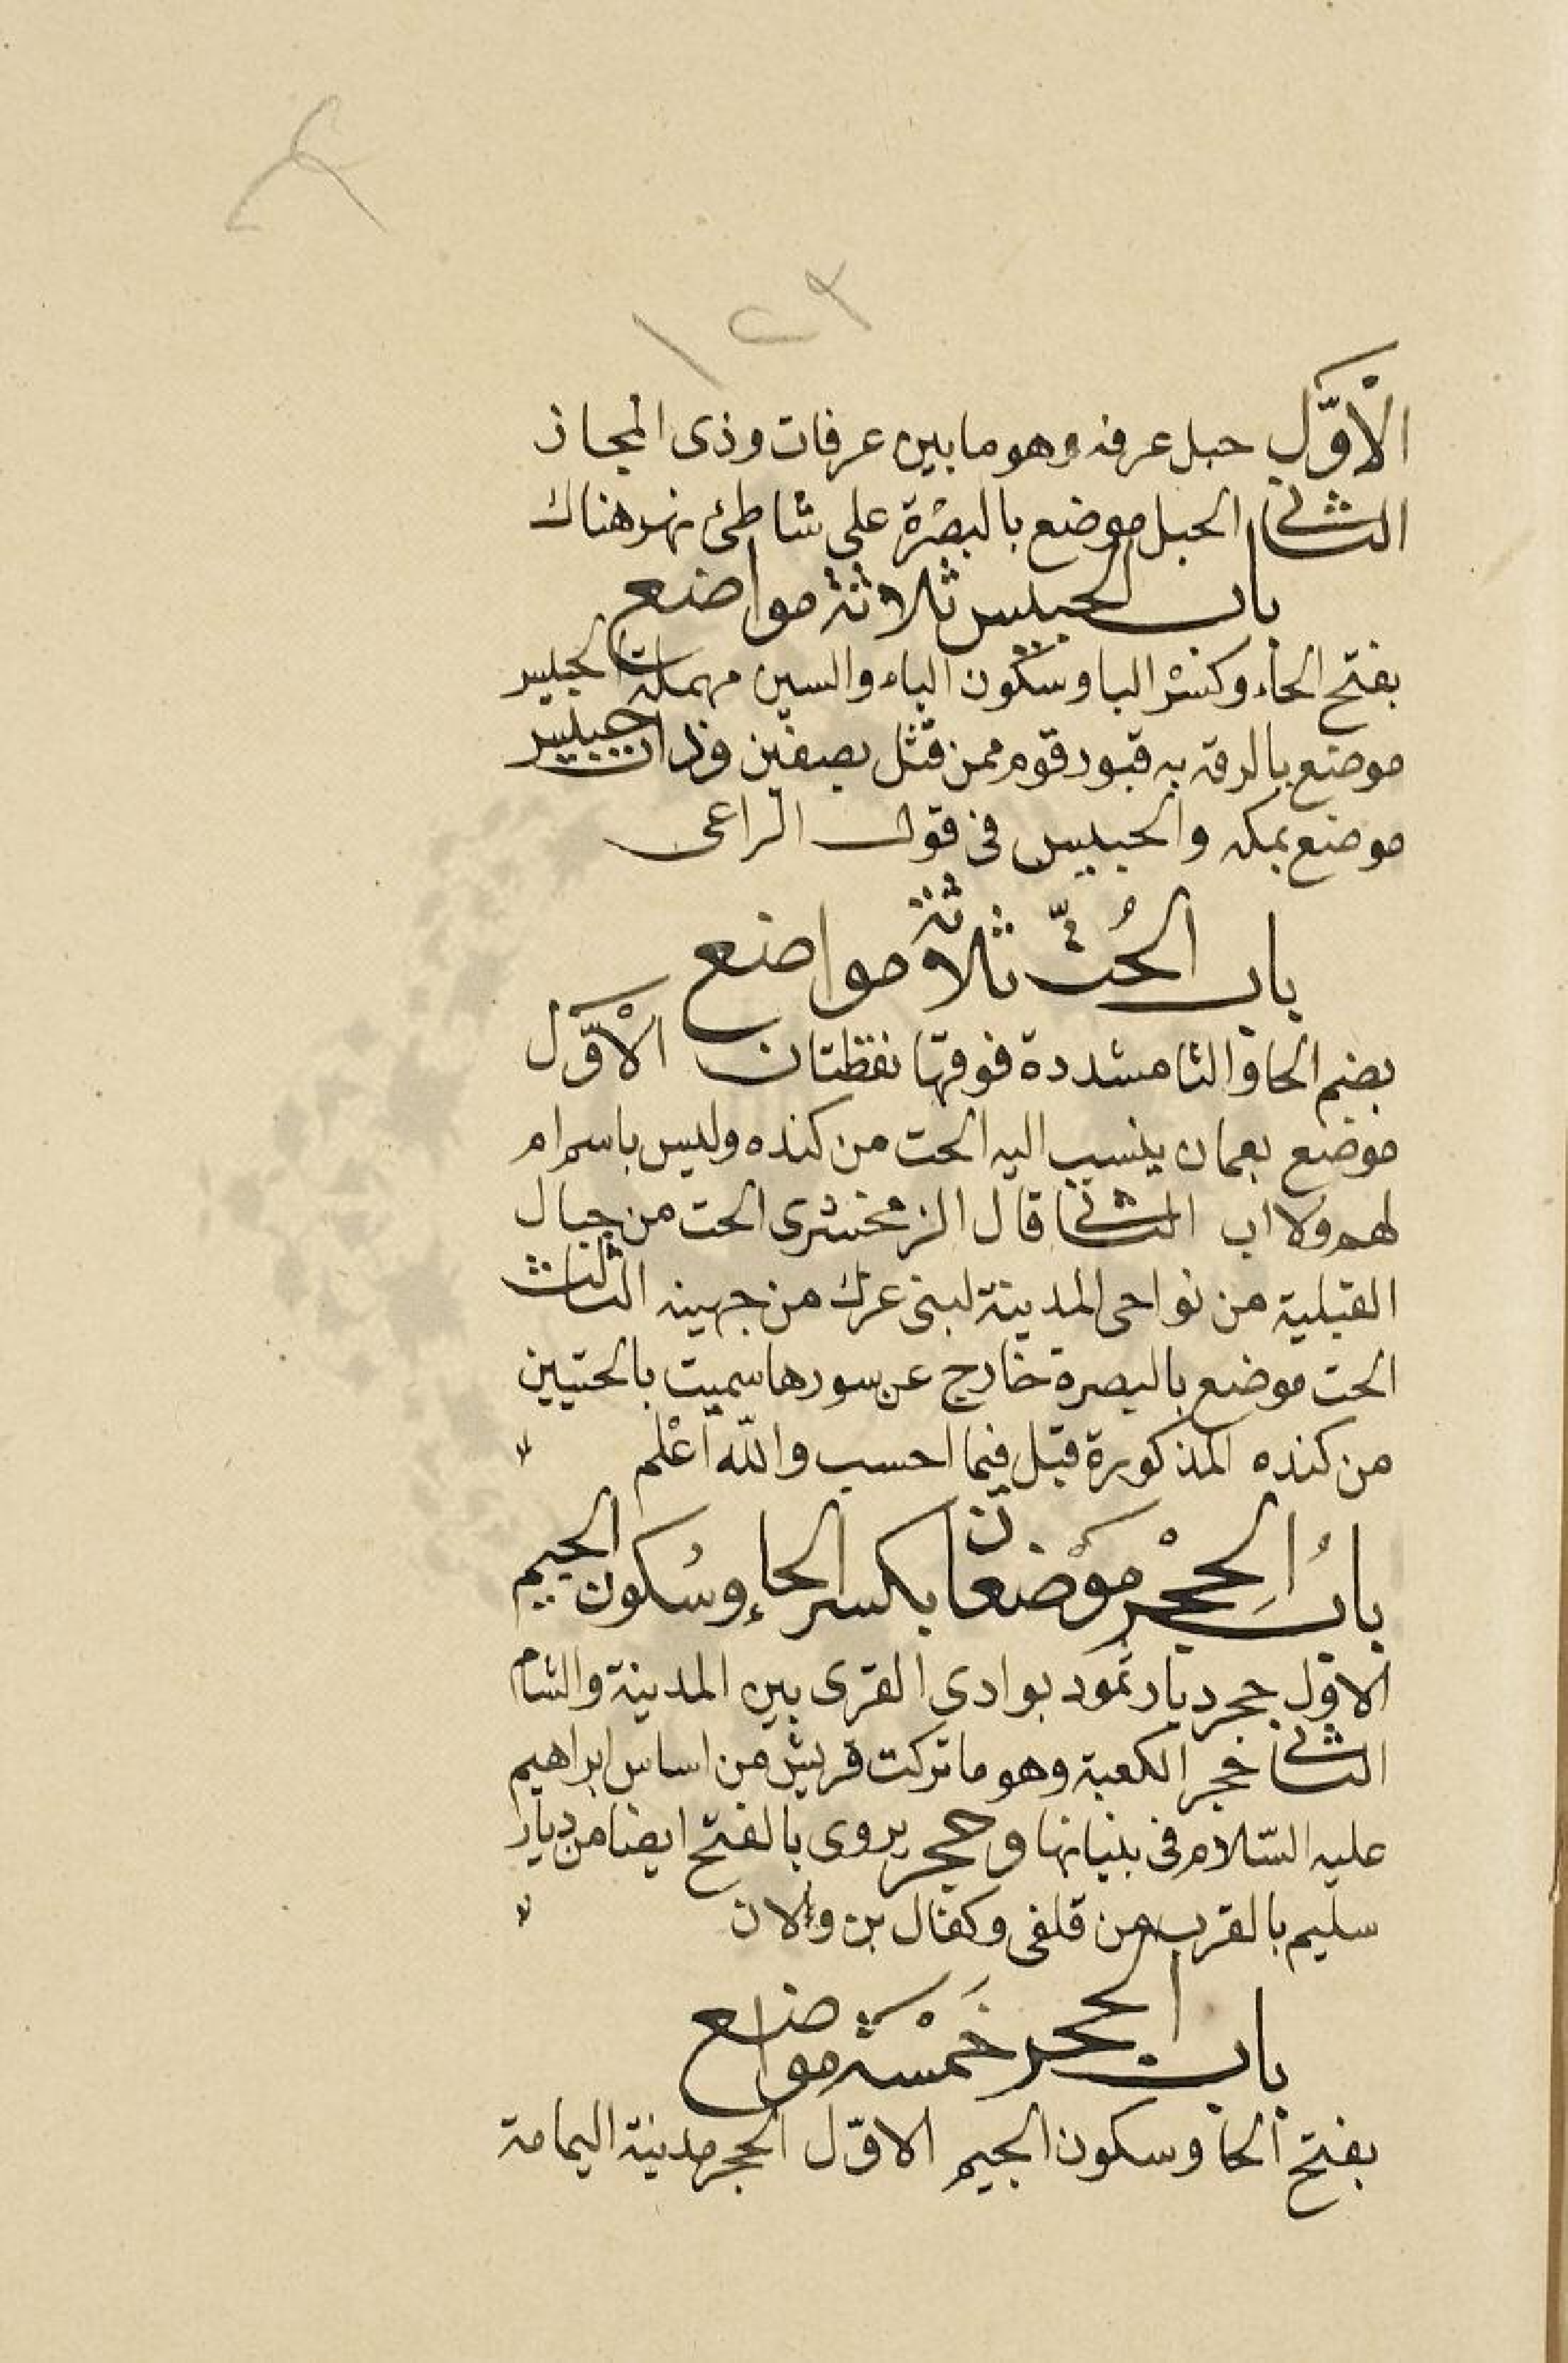 الْأوَّل حبل عرفه وهو ما بين عرفات وذى المجاز
الثانى الحبل موضع بالبصْرة على شاطئ نهر هناك
باب الحبيس ثلاثة مواضع
بفتح الحاء وكسْر البا وسكون الياء والسين مهملة الحبيس
موضع بالرقة به قبور قوم ممن قتل بصفين وذات حبيس
موضع بمكه والحبيس فى قول الراعى
باب الحُتّ ثلاثة مواضع
بضم الحا والتا مشددة فوقها نقطتان الْأوَّل
موضع بعمان ينسب اليه الحت من كنده وليس باسم ام
لهم ولا اب الثانى قال الزمخشرى الحت من جبال
القبلية من نواحى المدينة لبنى عرك من جهينه الثالث
الحت موضع بالبصرة خارج عن سورها سميت بالحتيين
من كنده المذكورة قبل فيما احسب والله أعْلم
بابُ الحِجْر موْضعان بكسر الحاء وسُكون الجيم
الاول حجر ديار ثمود بوادى القرى بين المدينة والشام
الثانى حجر الكعبة وهو ما تركت قريش من اساس ابراهيم
عليه السّلام فى بنيانها وحجر يروى بالفتح ايضا من ديار
سليم بالقرب من قلفى وكفال بن والان
باب الحجر خَمْسَة مواضع
بفتح الحا وسكون الجيم الاوّل الحجر مدينة اليمامة